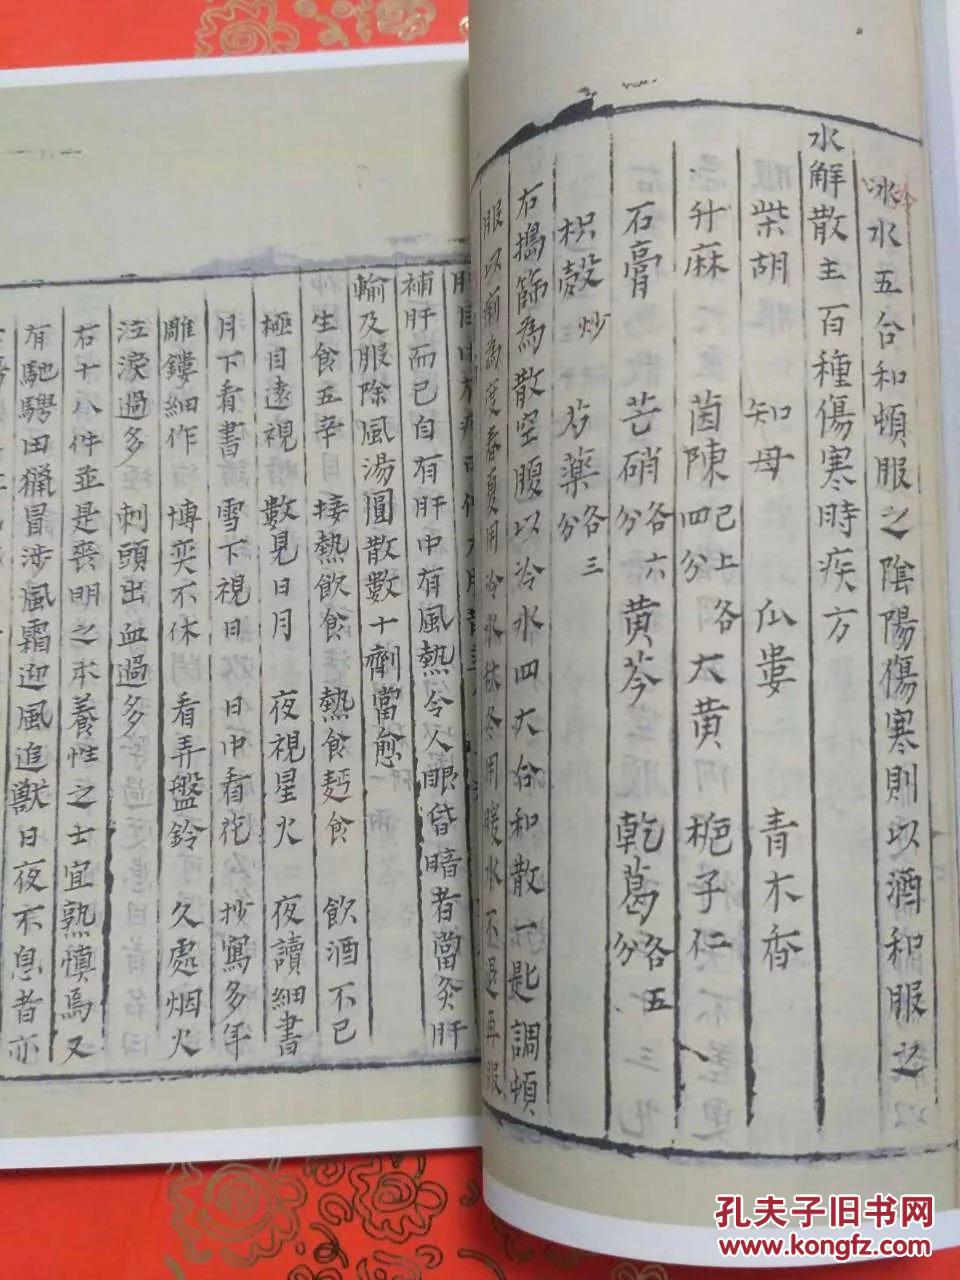 冰水五合和頓服之陰陽傷寒則以酒和服之
水解散主百種傷寒時疾方
柴胡 知母 瓜蔞 青木香
升麻 茵陳 已上各四分 大黄 梔子仁
石膏 芒硝 各六分 黄芩 乾葛 各五分
枳殼 炒 芍藥 各三分
右搗篩為散空腹以冷水四大合和散一匙調頓
服以瘌為度春夏用冷水秋冬用暖水不退再服
補肝而已自有肝中有風熱令人眼昏暗者當灸肝
輸及服除風湯圓散數十劑當愈
生食五辛 接熱飲食 熱食麪食 飲酒不已
極目遠視 數見日月 夜視星火 夜讀細書
月下看書 雪下視日 日中看花 抄寫多年
雕鏤細作 博奕不休 看弄盤鈴 久處烟火
泣淚過多 刺頭出血過多
右十八件並是喪明之本養性之士宜熟慎焉又
有馳騁田獵冒涉風霜迎風追獸日夜不息者亦
孔夫子旧书网
www.kongfz.com